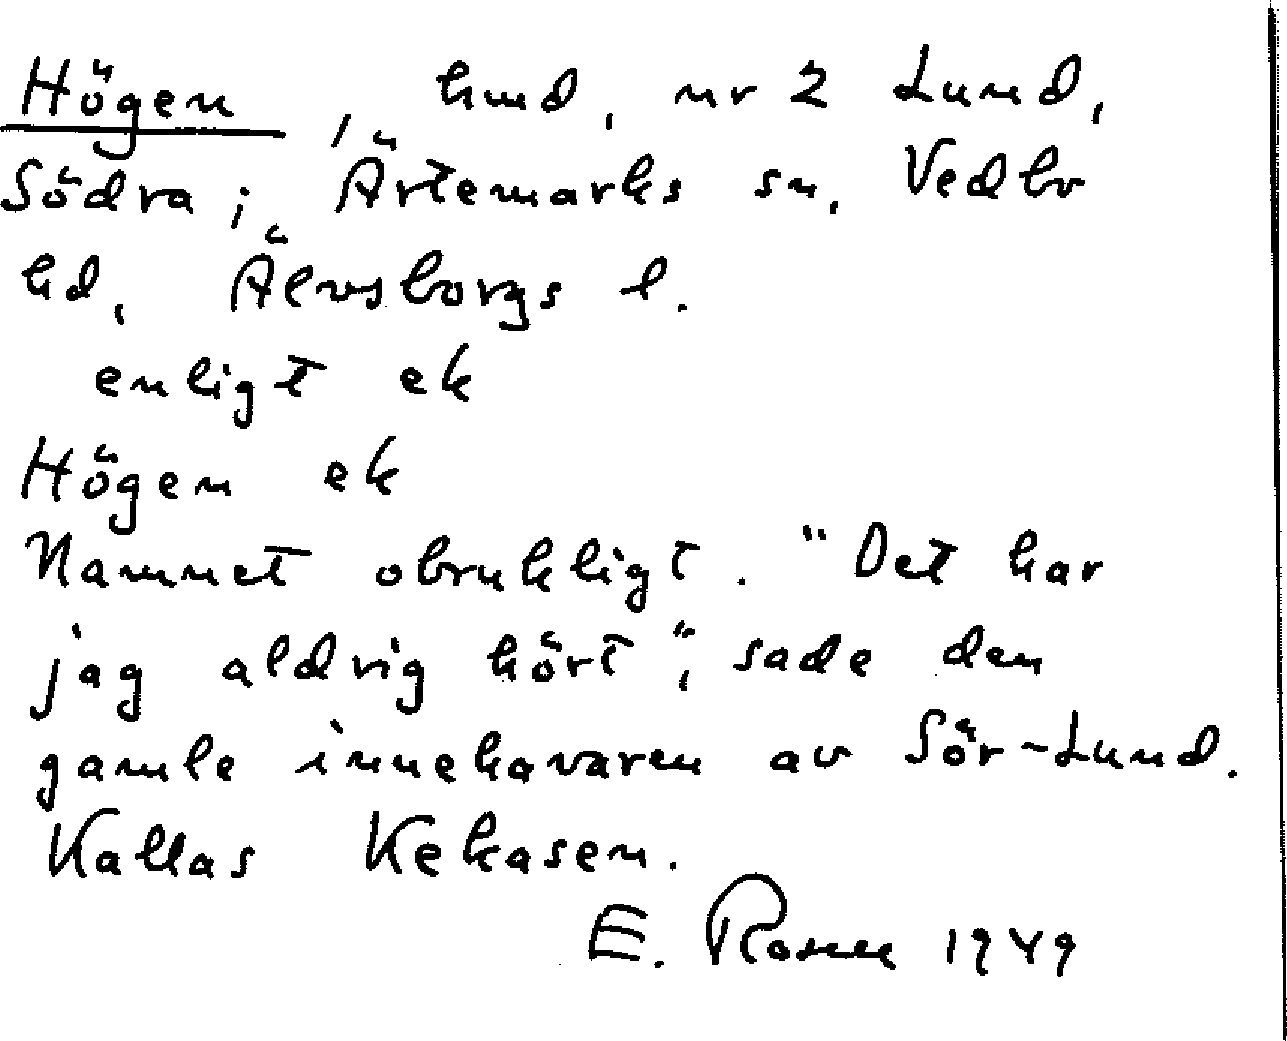 Högen, hmd, nr 2 Lund,
Södra; Ärtemarks sn, Vedbo
hd, Älvsborgs l.
enligt ek
Högen ek
Namnet obrukligt. "Det har
jag aldrig hört", sade den
gamle innehavaren av Sör-Lund.
Kallas Kekasen.
E. Rosell 1949